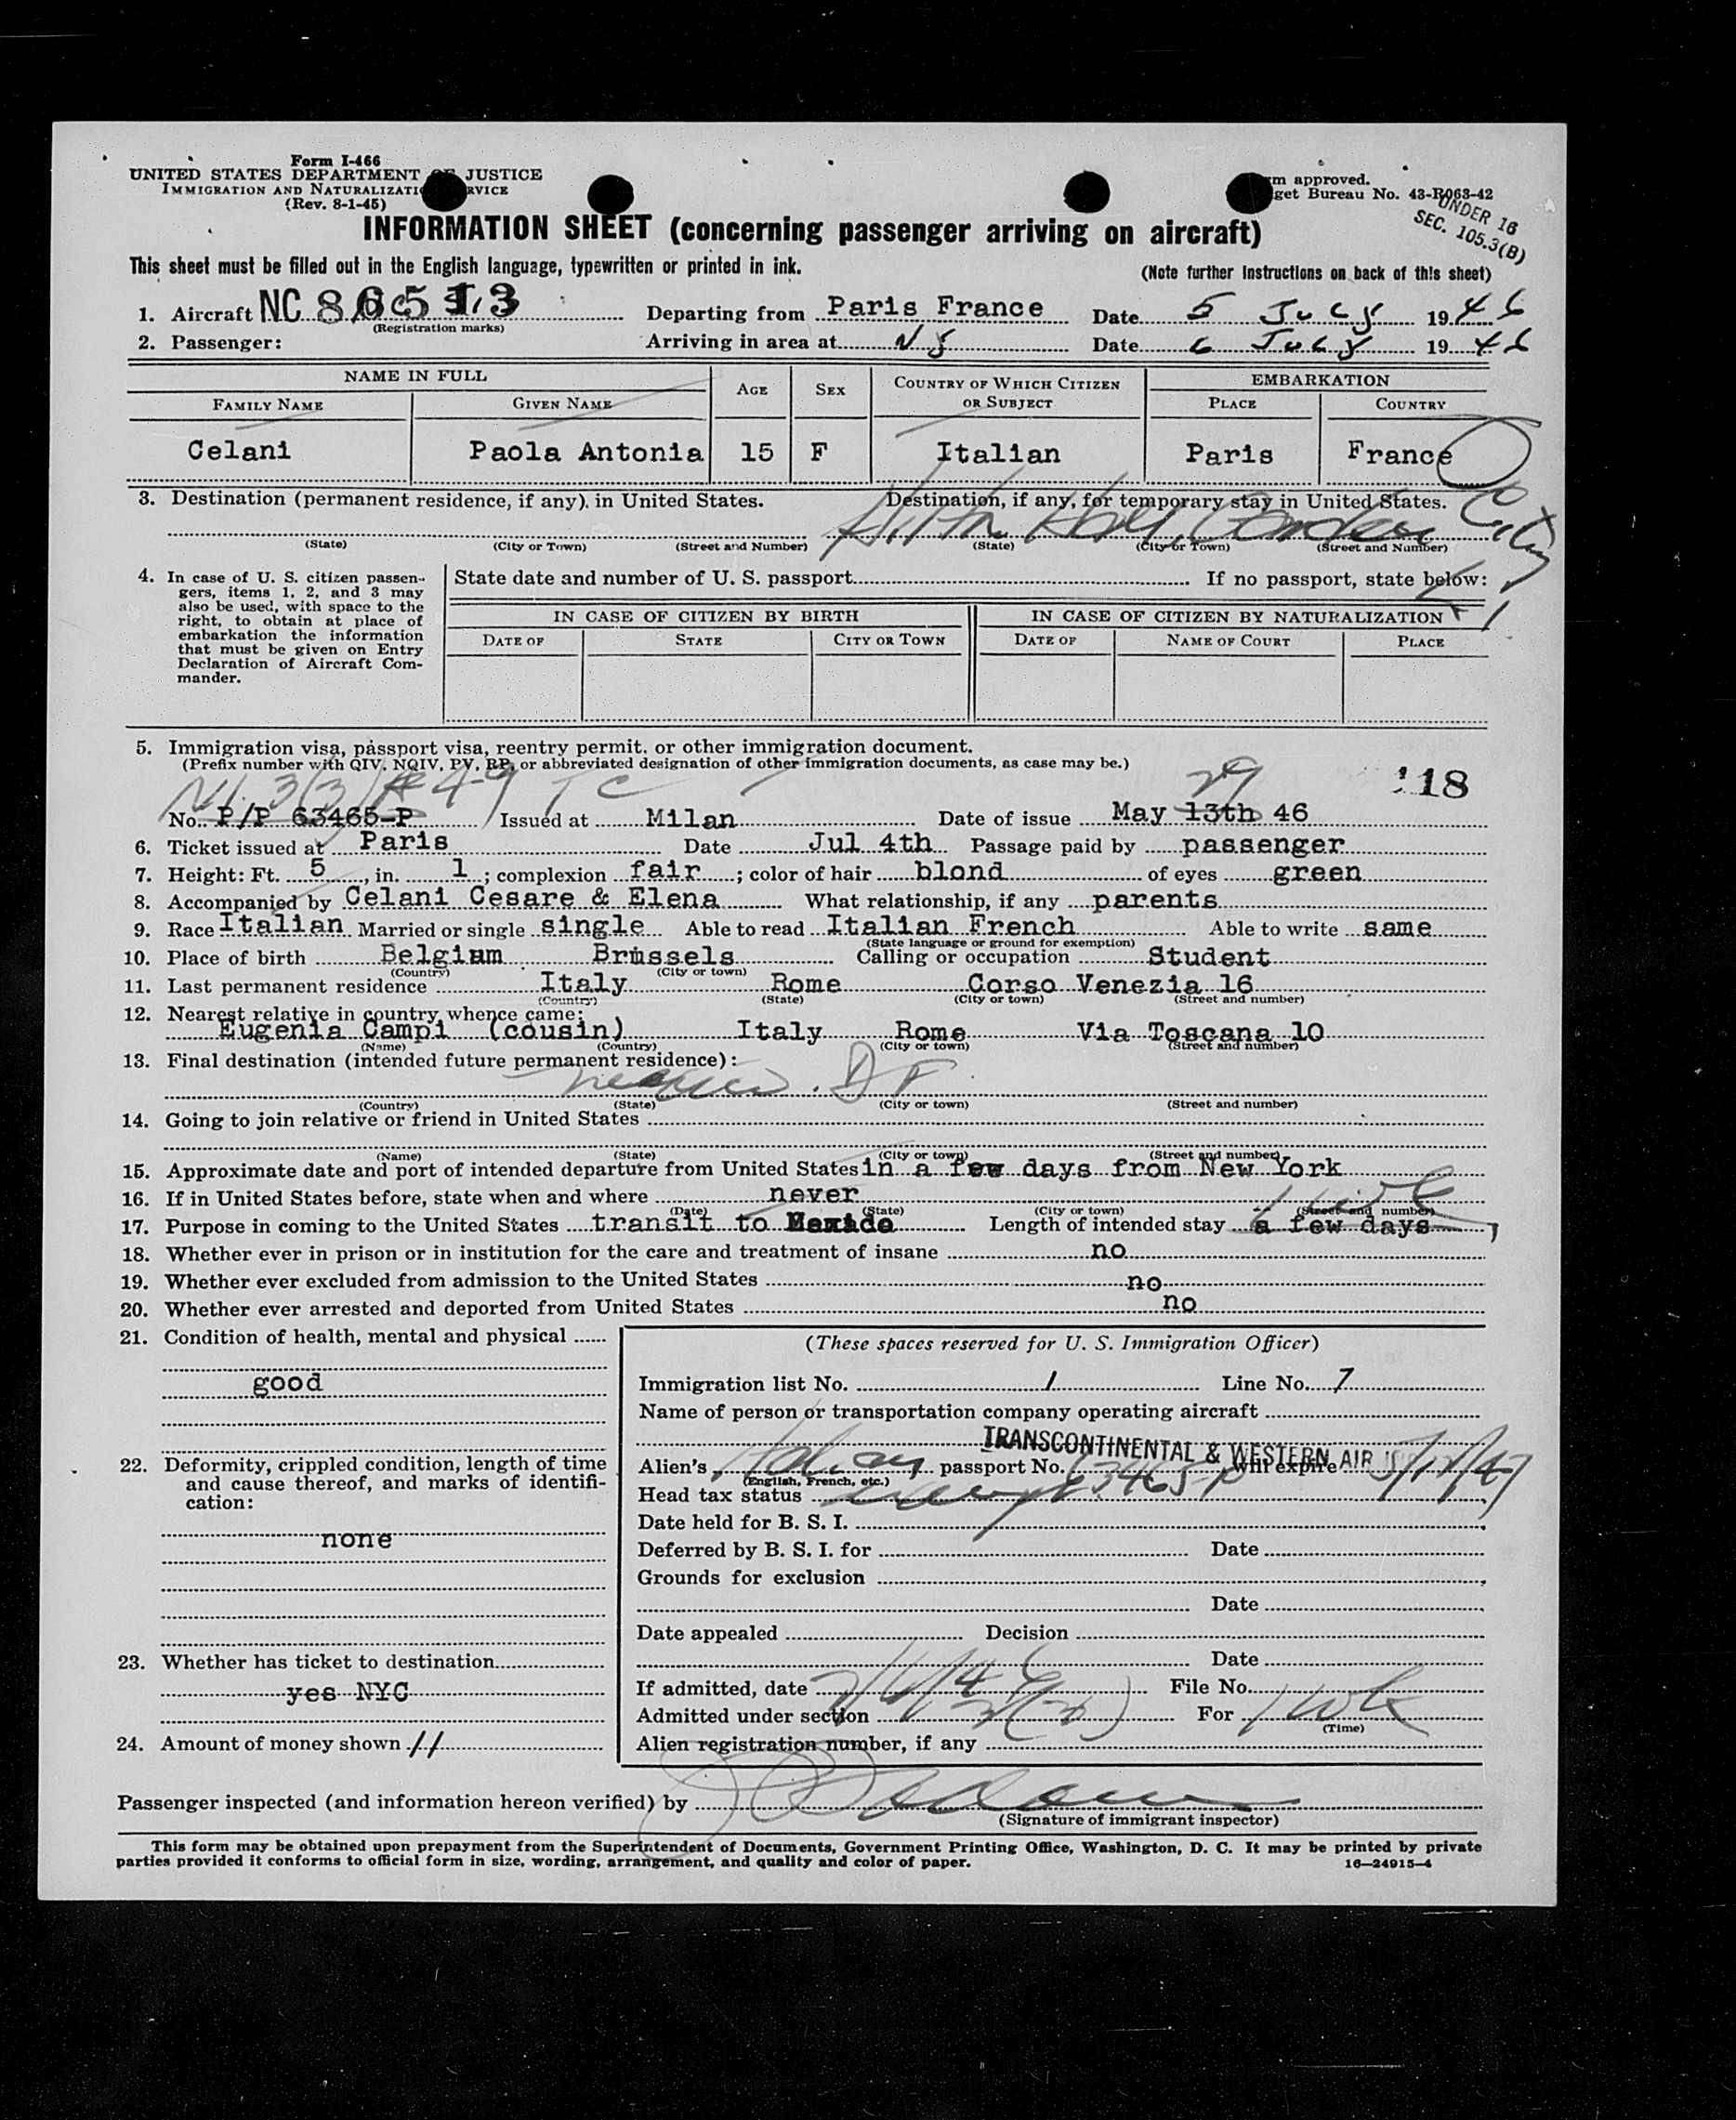 Form I-466
UNITED STATES DEPARTMENT OF JUSTICE
IMMIGRATION AND NATURALIZATI RVICE
(Rev. 8-1-45)
m approved.
get Bureau No. 43-R063-42
UNDER 16
SEC. 105.3(B)
INFORMATION SHEET (concerning passenger arriving on aircraft)
This sheet must be filled out in the English language, typewritten or printed in ink.
(Note further instructions on back of this sheet)
1. Aircraft NC 86513 Departing from Paris France Date 5 July 1946
(Registration marks)
2. Passenger: Arriving in area at NY Date 6 July 1946
NAME IN FULL AGE SEX COUNTRY OF WHICH CITIZEN OR SUBJECT EMBARKATION
FAMILY NAME GIVEN NAME PLACE COUNTRY
Celani Paola Antonia 15 F Italian Paris France
3. Destination (permanent residence, if any) in United States. Destination, if any, for temporary stay in United States.
Hotel, Garden City
(State) (City or Town) (Street and Number) (State) (City or Town) (Street and Number)
4. In case of U. S. citizen passengers, items 1, 2, and 3 may also be used, with space to the right, to obtain at place of embarkation the information that must be given on Entry Declaration of Aircraft Commander.
State date and number of U. S. passport If no passport, state below:
IN CASE OF CITIZEN BY BIRTH IN CASE OF CITIZEN BY NATURALIZATION
DATE OF STATE CITY OR TOWN DATE OF NAME OF COURT PLACE
5. Immigration visa, passport visa, reentry permit, or other immigration document.
(Prefix number with QIV, NQIV, PV, RP, or abbreviated designation of other immigration documents, as case may be.)
TC 29 118
No. P/P 63465-P Issued at Milan Date of issue May 13th 46
6. Ticket issued at Paris Date Jul 4th Passage paid by passenger
7. Height: Ft. 5, in. 1; complexion fair; color of hair blond of eyes green
8. Accompanied by Celani Cesare & Elena What relationship, if any parents
9. Race Italian Married or single single Able to read Italian French Able to write same
(State language or ground for exemption)
10. Place of birth Belgium Brussels Calling or occupation Student
(Country) (City or town)
11. Last permanent residence Italy Rome Corso Venezia 16
(Country) (State) (City or town) (Street and number)
12. Nearest relative in country whence came:
Eugenia Campi (cousin) Italy Rome Via Toscana 10
(Name) (Country) (City or town) (Street and number)
13. Final destination (intended future permanent residence):
Mexico. D F
(Country) (State) (City or town) (Street and number)
14. Going to join relative or friend in United States
(Name) (State) (City or town) (Street and number)
15. Approximate date and port of intended departure from United States in a few days from New York
16. If in United States before, state when and where never
(Date) (State) (City or town) (Street and number)
17. Purpose in coming to the United States transit to Mexico Length of intended stay a few days
18. Whether ever in prison or in institution for the care and treatment of insane no
19. Whether ever excluded from admission to the United States no
20. Whether ever arrested and deported from United States no
21. Condition of health, mental and physical
good
22. Deformity, crippled condition, length of time and cause thereof, and marks of identification:
none
23. Whether has ticket to destination
yes NYC
24. Amount of money shown //
(These spaces reserved for U. S. Immigration Officer)
Immigration list No. 1 Line No. 7
Name of person or transportation company operating aircraft
TRANSCONTINENTAL & WESTERN AIR
Alien's Italian passport No. 63465 P will expire 5/12/47
(English, French, etc.)
Head tax status exempt
Date held for B. S. I.
Deferred by B. S. I. for Date
Grounds for exclusion
Date
Date appealed Decision
Date
If admitted, date 7/6/46 File No.
Admitted under section For 1 wk
(Time)
Alien registration number, if any
Passenger inspected (and information hereon verified) by
(Signature of immigrant inspector)
This form may be obtained upon prepayment from the Superintendent of Documents, Government Printing Office, Washington, D. C. It may be printed by private
parties provided it conforms to official form in size, wording, arrangement, and quality and color of paper. 16—24915-4